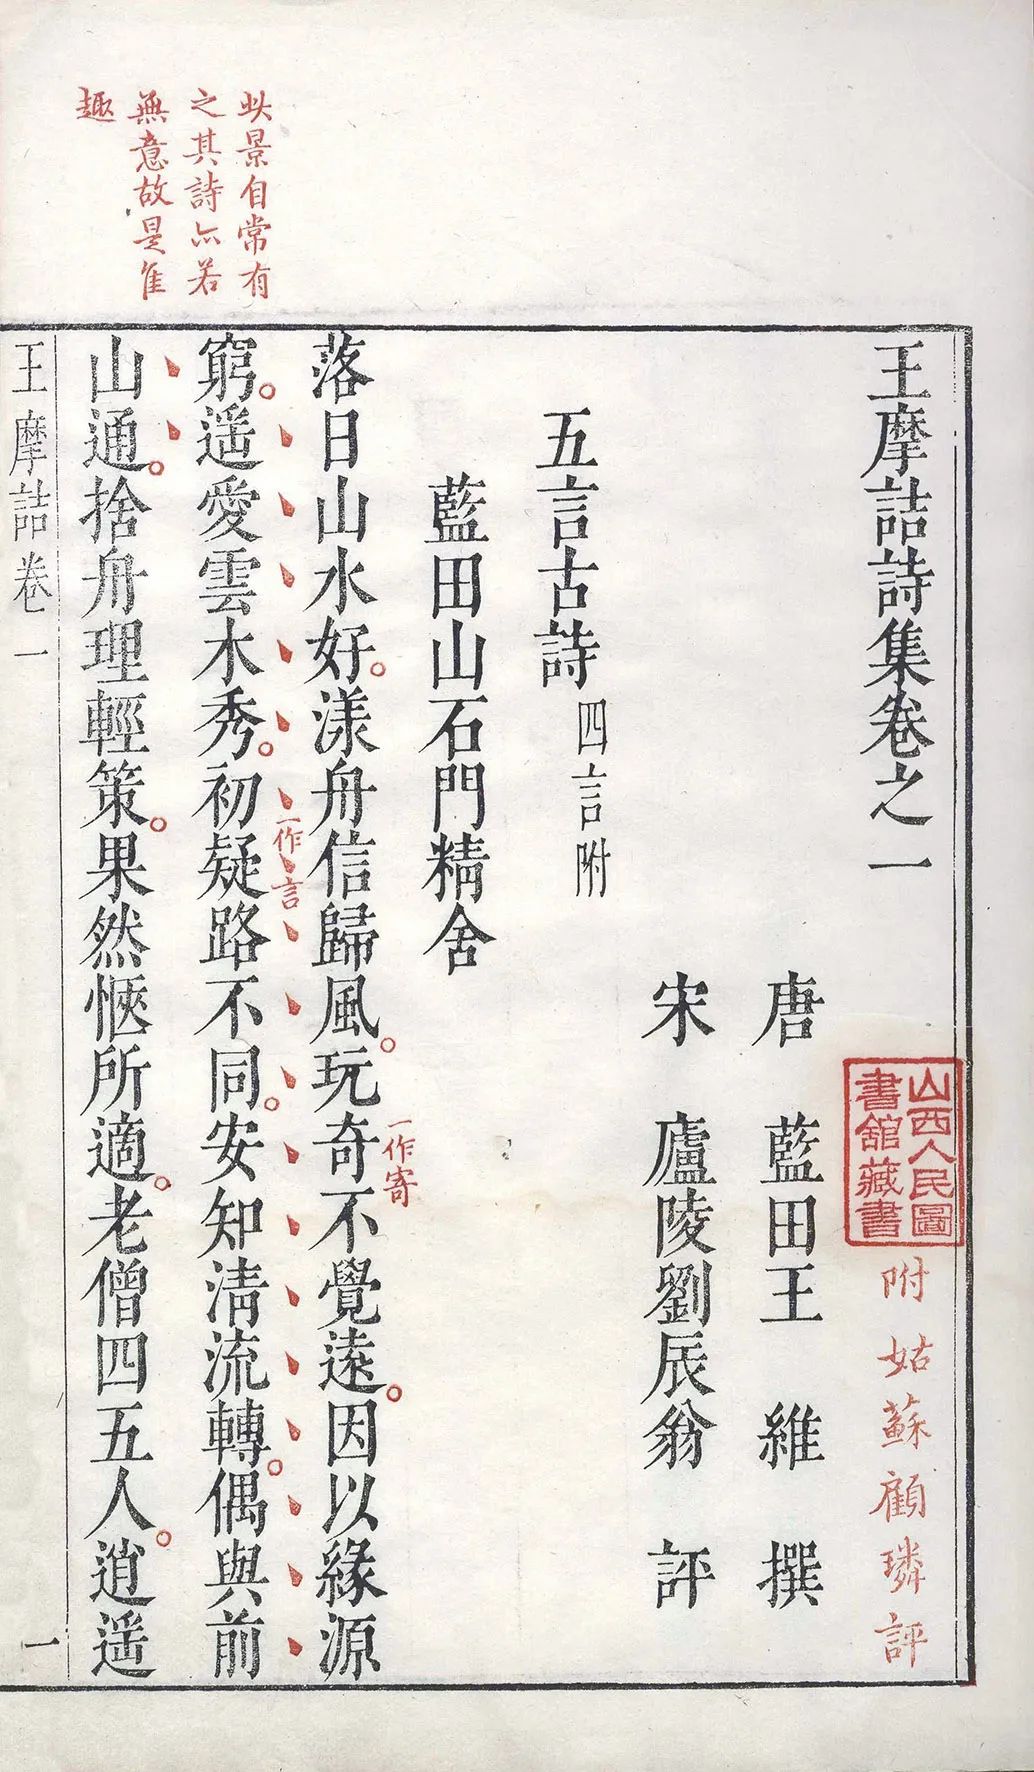 王摩詰詩集卷之一
唐 藍田王 維 撰
宋 廬陵劉辰翁 評
附 姑蘇顧璘評
山西人民圖
書舘藏書
五言古詩 四言附
藍田山石門精舍
落日山水好漾舟信歸風玩奇不覺遠因以緣源
一作寄
窮遥愛雲木秀初疑路不同安知清流轉偶與前
一作言
山通捨舟理輕策果然愜所適老僧四五人逍遥
此景自常有
之其詩亦若
無意故是佳
趣
王摩詰卷一
一